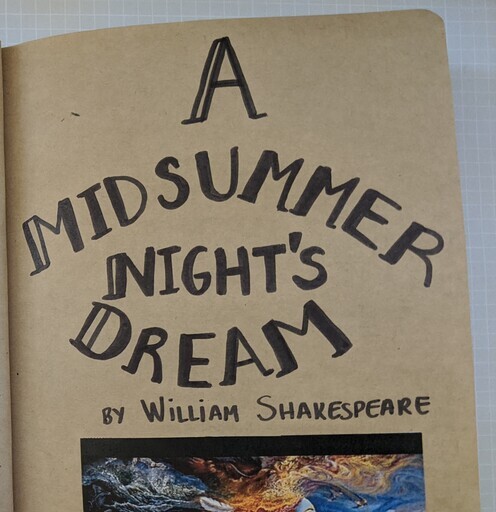 A
MIDSUMMER
NIGHT'S
DREAM
BY WILLIAM SHAKESPEARE